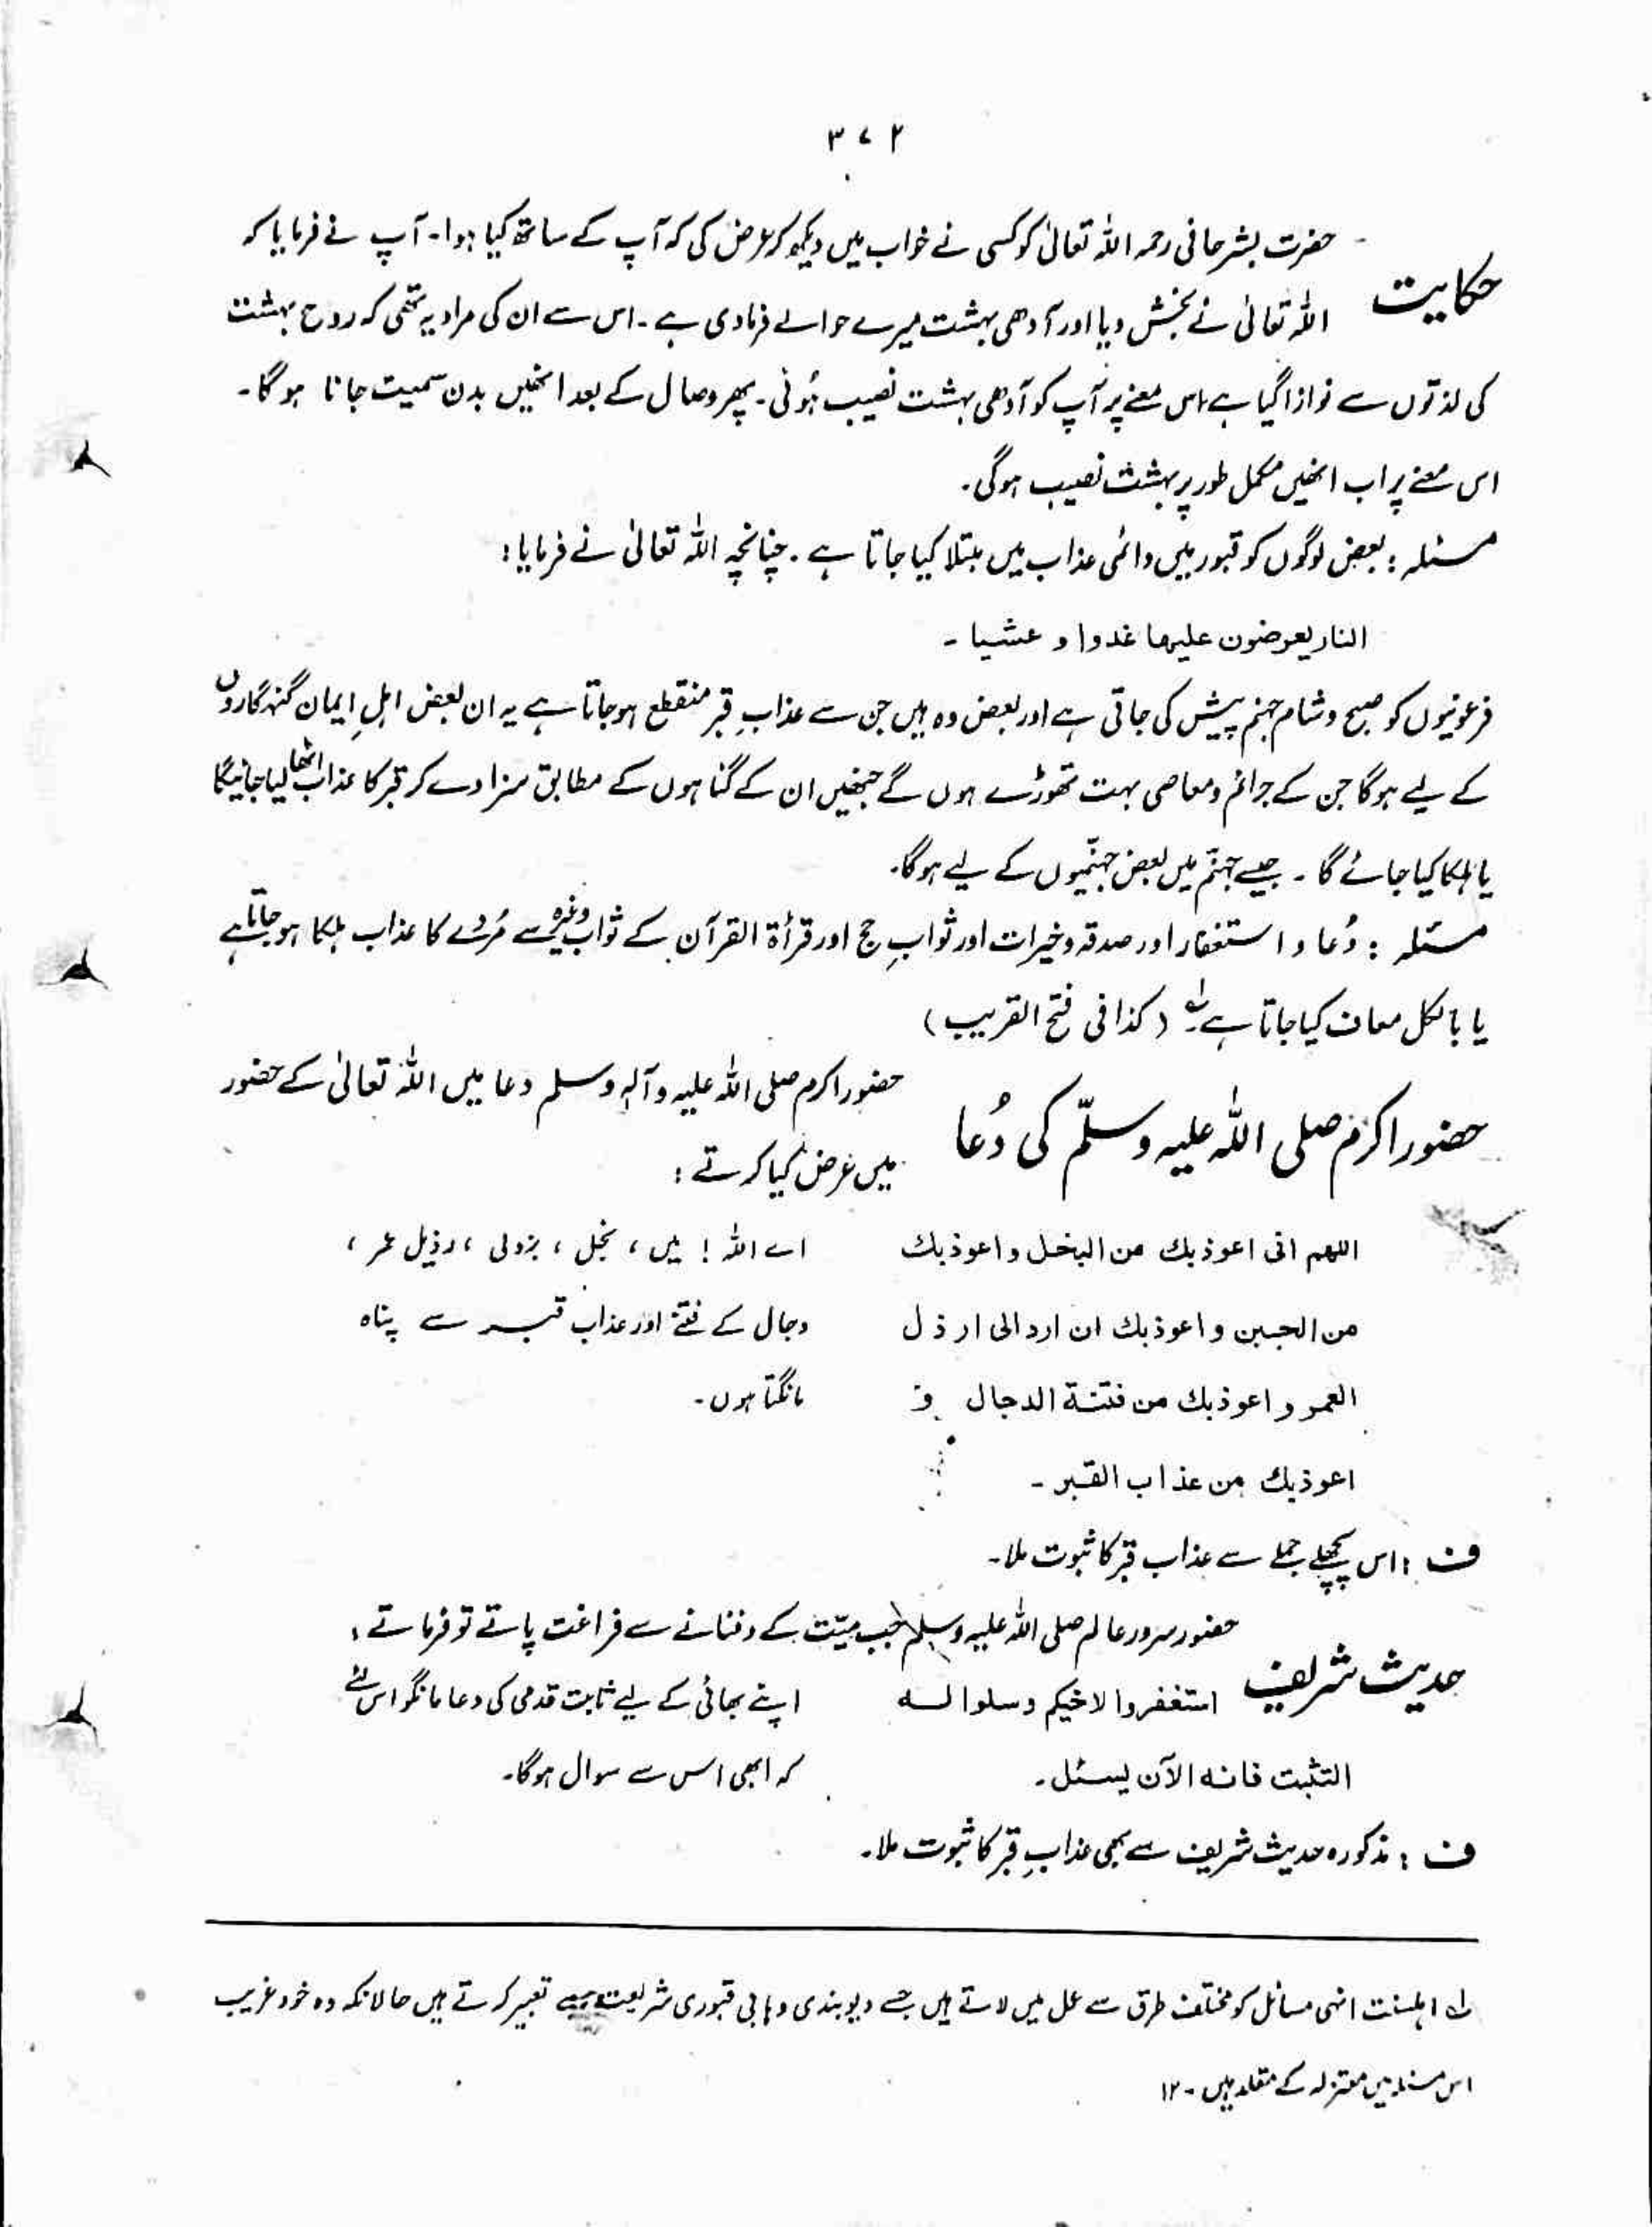 ۳۷۲
حکایت
حضرت بشر حافی رحمہ اللہ تعالیٰ کو کسی نے خواب میں دیکھ کر عرض کی کہ آپ کے ساتھ کیا ہوا۔ آپ نے فرمایا کہ
اللہ تعالیٰ نے بخش دیا اور آدھی بہشت میرے حوالے فرمادی ہے۔ اس سے ان کی مراد یہ تھی کہ روح بہشت
کی لذتوں سے نوازا گیا ہے اس معنے پر آپ کو آدھی بہشت نصیب ہُوئی۔ پھر وصال کے بعد انھیں بدن سمیت جانا ہو گا۔
اس معنے پر اب انھیں مکمل طور پر بہشت نصیب ہوگی۔
مسئلہ: بعض لوگوں کو قبور میں دائمی عذاب میں مبتلا کیا جاتا ہے۔ چنانچہ اللہ تعالیٰ نے فرمایا:
النار يعرضون عليها غدوا و عشيا۔
فرعونیوں کو صبح و شام جہنم پیش کی جاتی ہے اور بعض وہ ہیں جن سے عذابِ قبر منقطع ہوجاتا ہے یہ ان بعض اہلِ ایمان گنہگاروں
کے لیے ہوگا جن کے جرائم و معاصی بہت تھوڑے ہوں گے جنھیں ان کے گناہوں کے مطابق سزا دے کر قبر کا عذاب اٹھا لیا جائیگا
یا ہلکا کیا جائے گا۔ جیسے جہنّم میں بعض جہنّمیوں کے لیے ہوگا۔
مسئلہ: دُعا و استغفار اور صدقہ و خیرات اور ثوابِ حج اور قرأۃ القرآن کے ثواب وغیرہ سے مُردے کا عذاب ہلکا ہوجاتا ہے
یا بالکل معاف کیا جاتا ہے۔ (کذا فی فتح القریب)
حضور اکرم صلی اللہ علیہ وسلّم کی دُعا
حضور اکرم صلی اللہ علیہ وآلہٖ وسلم دعا میں اللہ تعالیٰ کے حضور
میں عرض کیا کرتے:
اللهم انى اعوذ بك من البخل و اعوذ بك
من الجبن و اعوذ بك ان ارد الى ارذل
العمر و اعوذ بك من فتنة الدجال و
اعوذ بك من عذاب القبر۔
اے اللہ! میں، بخل، بزدلی، رذیل عمر،
دجال کے فتنے اور عذاب قبر سے پناہ
مانگتا ہوں۔
ف: اس پچھلے جملے سے عذاب قبر کا ثبوت ملا۔
حدیث شریف
حضور سرور عالم صلی اللہ علیہ وسلم جب میّت کے دفنانے سے فراغت پاتے تو فرماتے:
استغفروا لاخيكم وسلوا له
التثبت فانه الآن يسئل۔
اپنے بھائی کے لیے ثابت قدمی کی دعا مانگو اس لئے
کہ ابھی اس سے سوال ہوگا۔
ف: مذکورہ حدیث شریف سے بھی عذابِ قبر کا ثبوت ملا۔
لہ اہلسنت انہی مسائل کو مختلف طرق سے عمل میں لاتے ہیں جسے دیوبندی وہابی قبوری شریعت سے تعبیر کرتے ہیں حالانکہ وہ خود غریب
اس مسئلہ میں معتزلہ کے مقلد ہیں۔ ۱۲